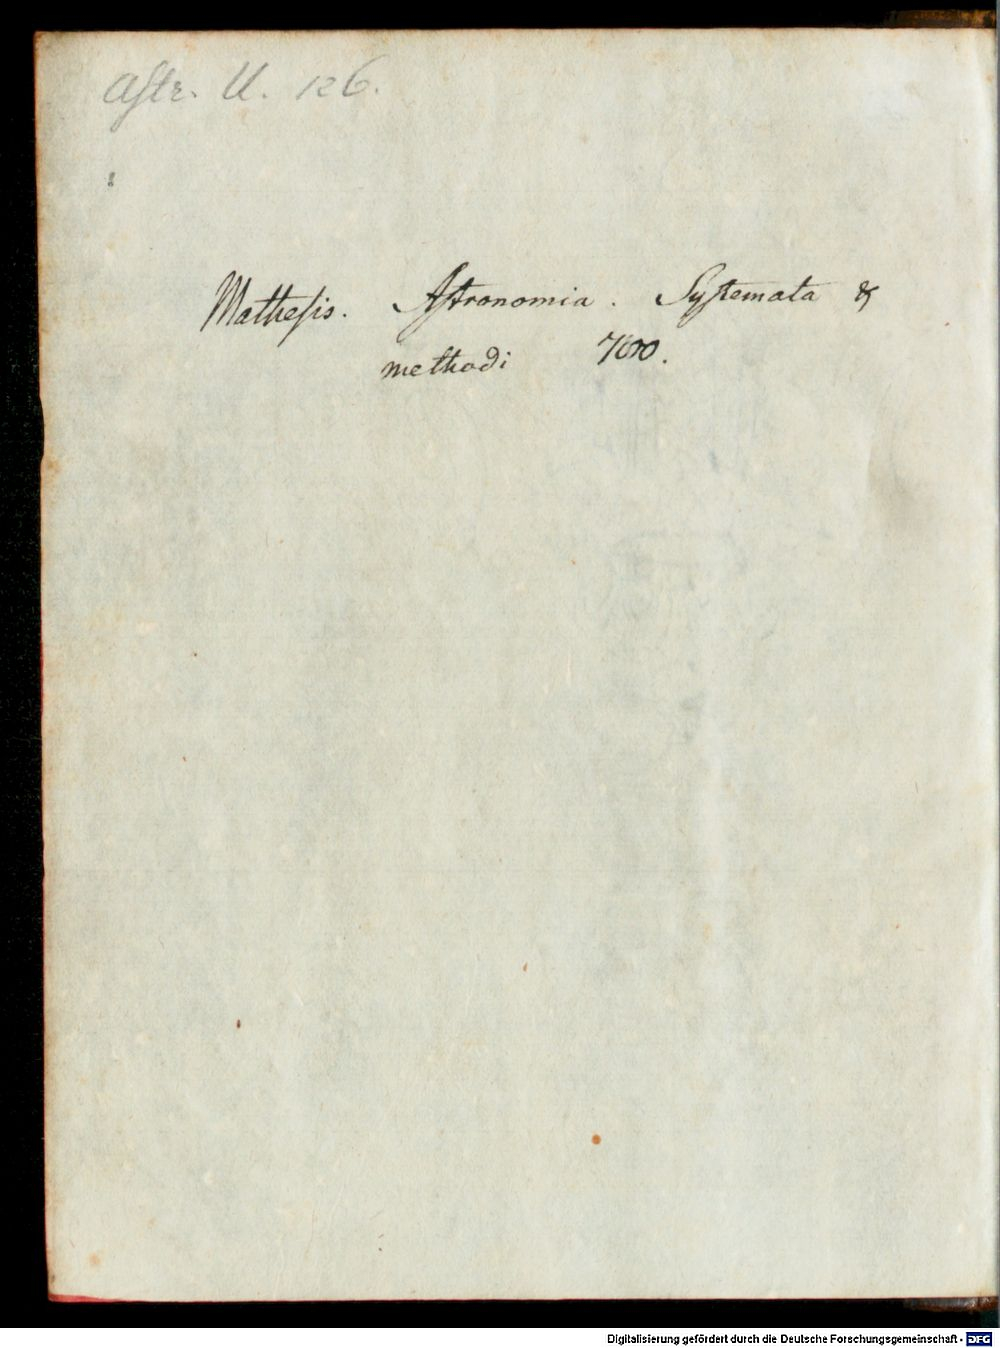 Astr. U. 126.
Mathesis. Astronomia. Systemata &
methodi
Digitalisierung gefördert durch die Deutsche Forschungsgemeinschaft - DFG